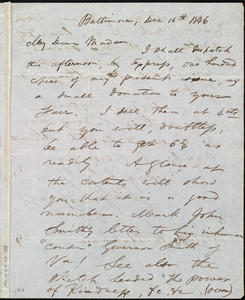 Baltimore, Dec 16th 1846
My Dear Madam: I shall despatch
this afternoon, by Express, one hundred
copies of my present issue as
a small donation to your
Fair. I see them at 4cts,
but you will, doubtless,
be able to get 6¼ as
readily. A glance at
the contents will show
you that it is a good
number. Mark John
Smith's letter to
"cousin" Governor Smith of
Va! See also the
sketch headed "the power
of Kindness, &c. &c. (over)